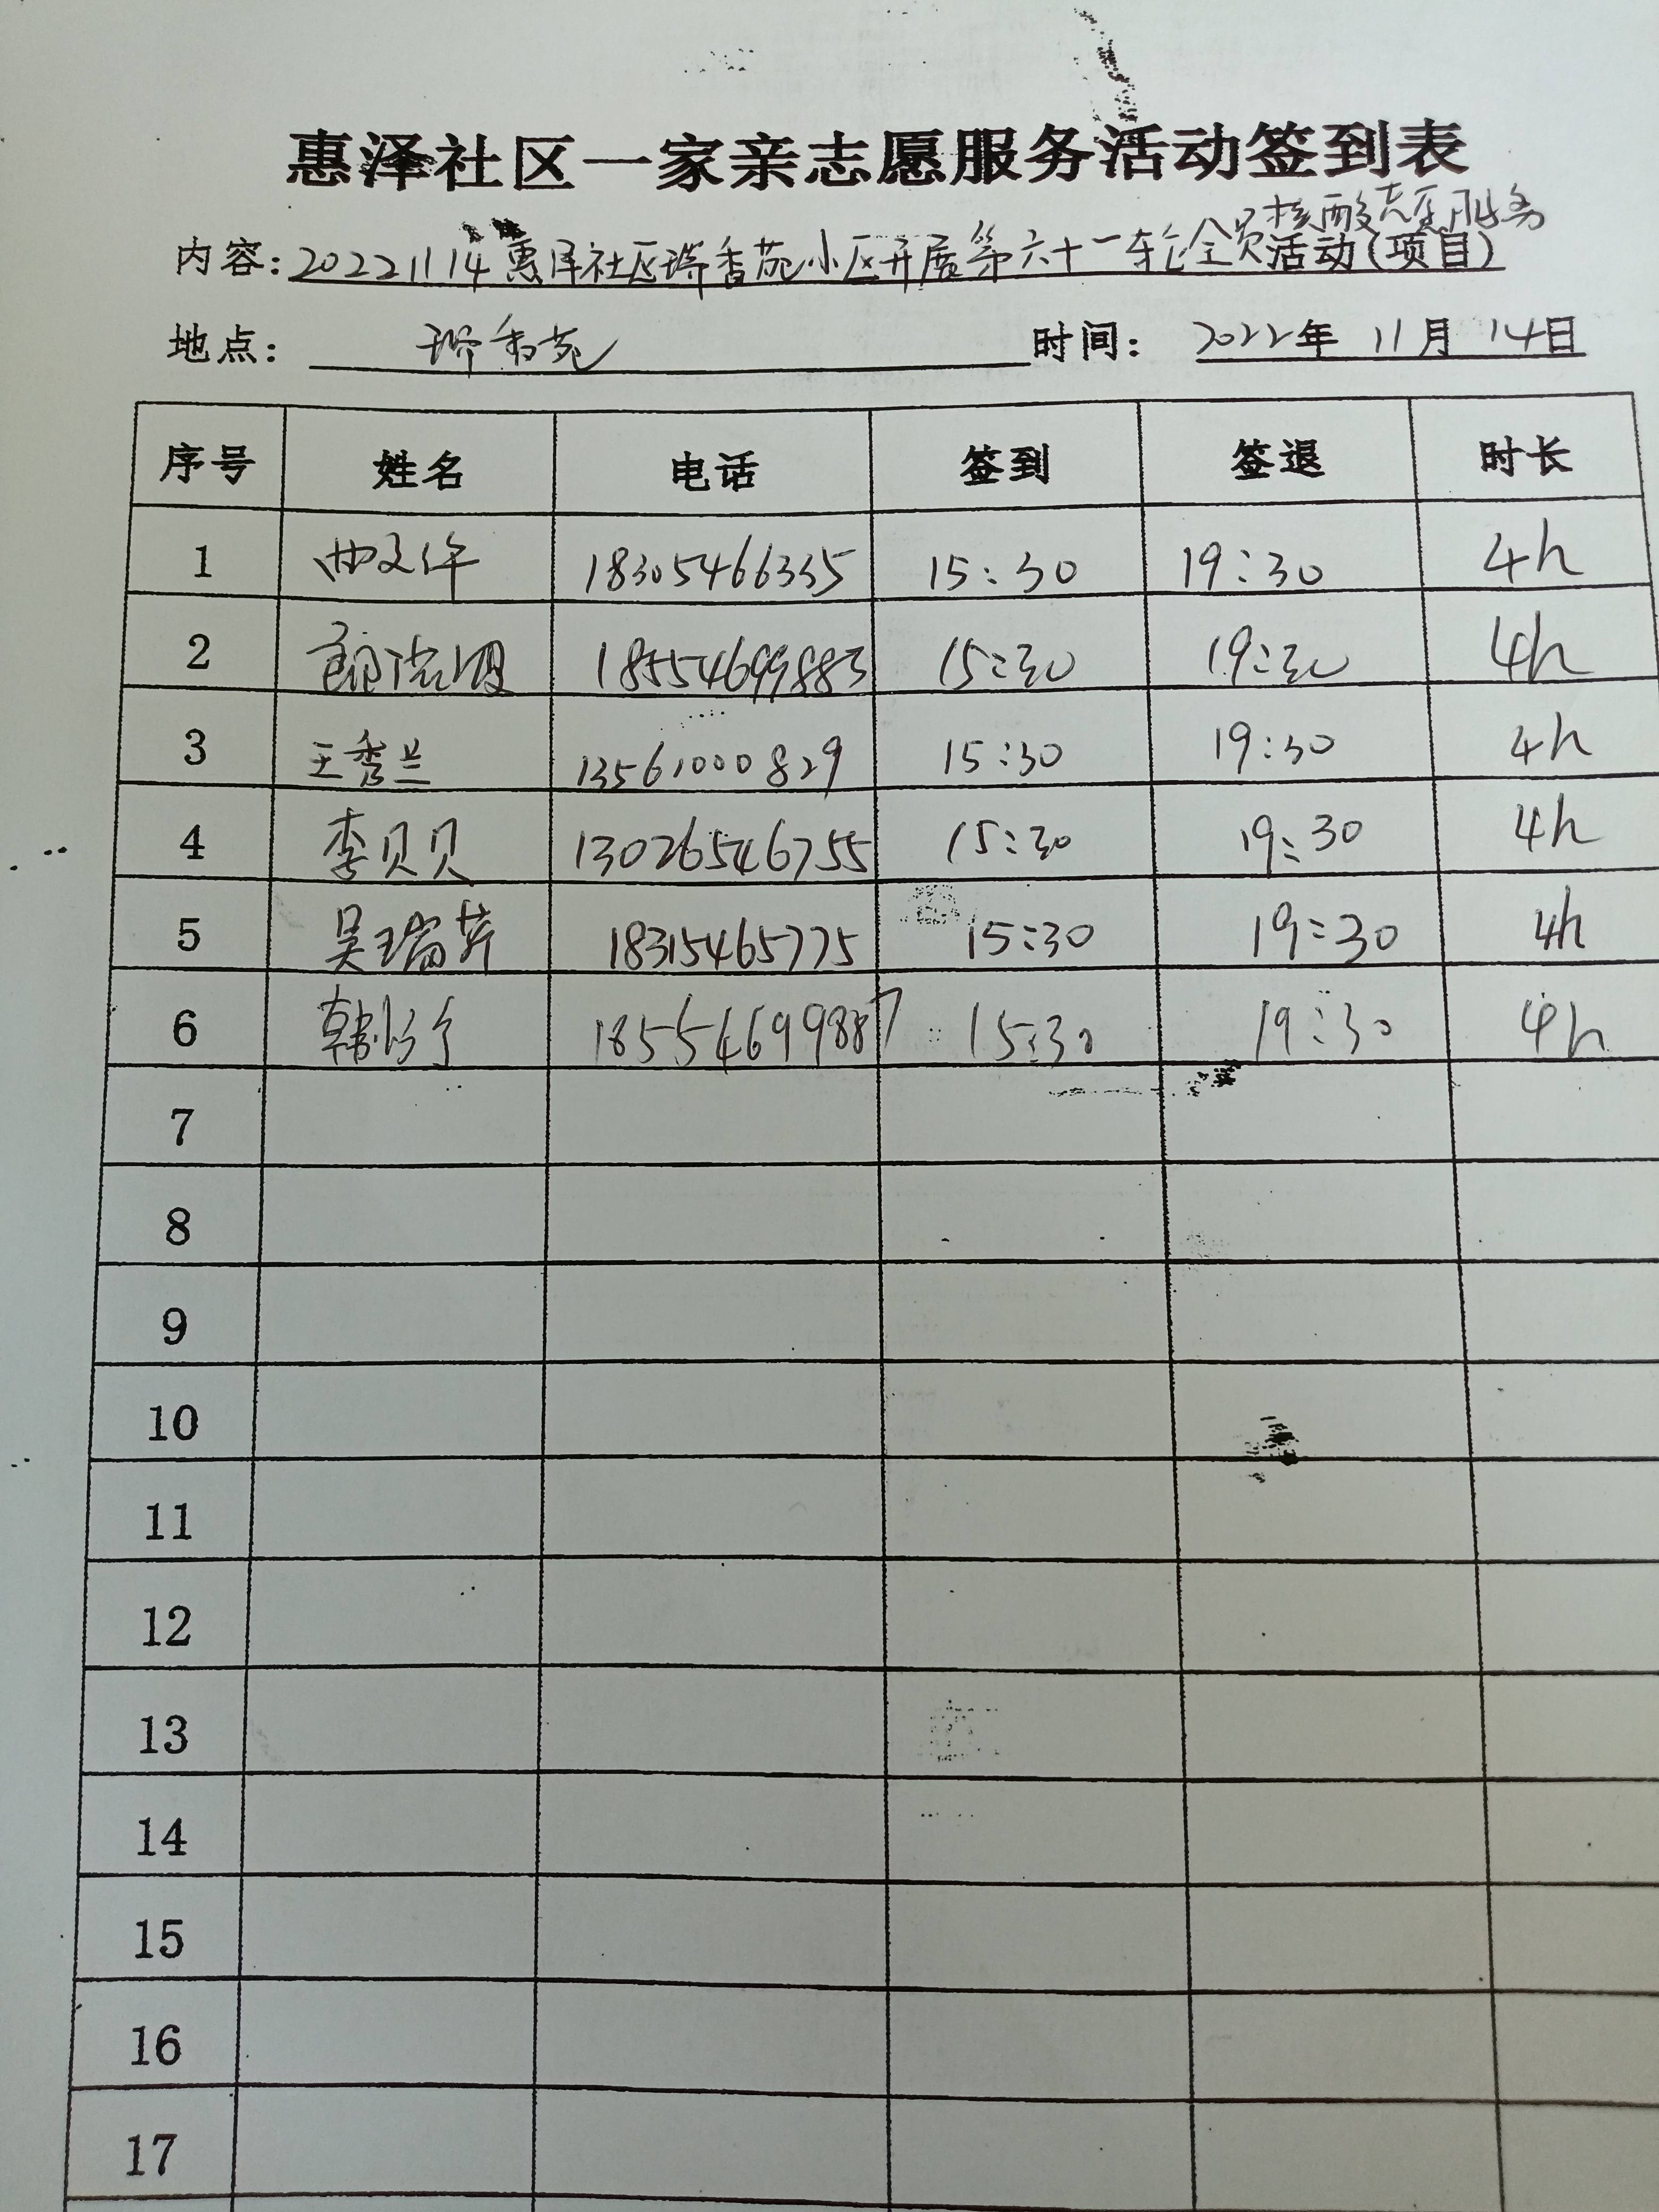 惠泽社区一家亲志愿服务活动签到表
核酸志愿服务
内容:20221114惠泽社区瑞香苑小区开展第六十一轮全员活动(项目)
地点: 瑞香苑 时间: 2022年 11月 14日
序号 姓名 电话 签到 签退 时长
1 18305466335 15:30 19:30 4h
2 18554699883 15:30 19:30 4h
3 王秀兰 13561000829 15:30 19:30 4h
4 李贝贝 13026546755 15:30 19:30 4h
5 吴瑞芹 18315465775 15:30 19:30 4h
6 18554699887 15:30 19:30 4h
7
8
9
10
11
12
13
14
15
16
17